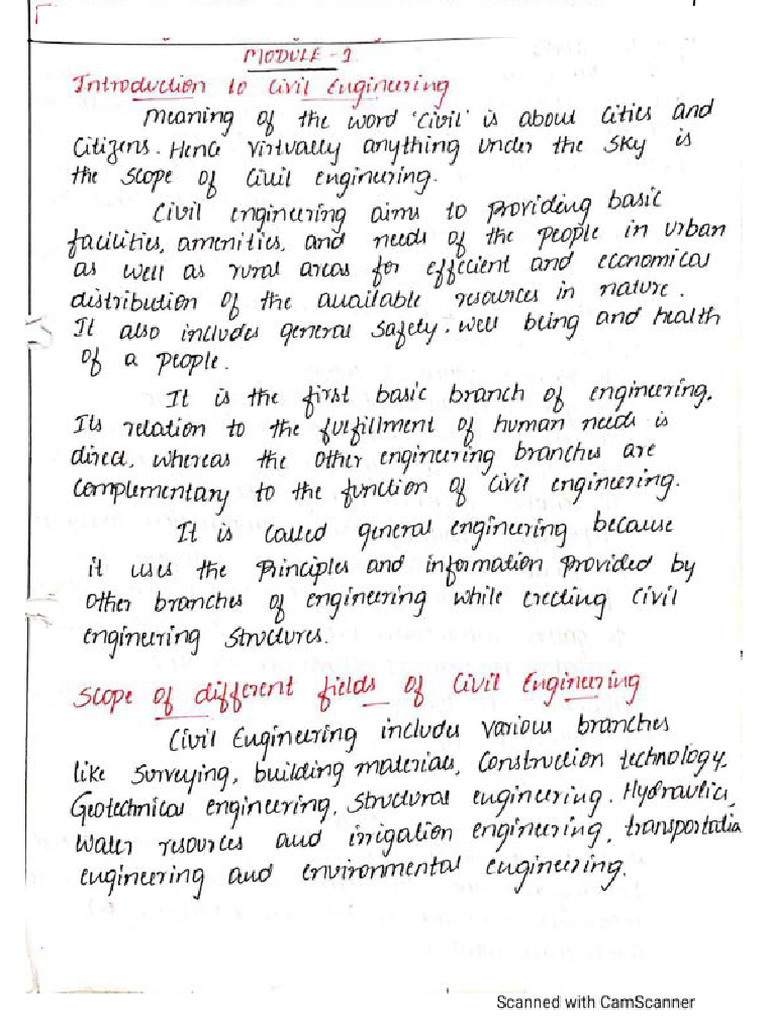 MODULE - 1
Introduction to Civil Engineering
Meaning of the word 'Civil' is about Cities and
Citizens. Hence Virtually anything under the Sky is
the Scope of Civil engineering.
Civil engineering aims to Providing basic
facilities, amenities, and needs of the People in Urban
as well as rural areas for efficient and economical
distribution of the available resources in nature.
It also includes general Safety, well being and health
of a people.
It is the first basic branch of engineering.
Its relation to the fulfillment of human needs is
direct, whereas the other engineering branches are
Complementary to the function of Civil engineering.
It is called general engineering because
it uses the Principles and information Provided by
Other branches of engineering while erecting Civil
engineering Structures.
Scope of different fields of Civil Engineering
Civil Engineering includes various branches
like Surveying, building materials, Construction technology,
Geotechnical engineering, Structural engineering, Hydraulics,
Water resources and irrigation engineering, transportatio
engineering and environmental engineering.
Scanned with CamScanner